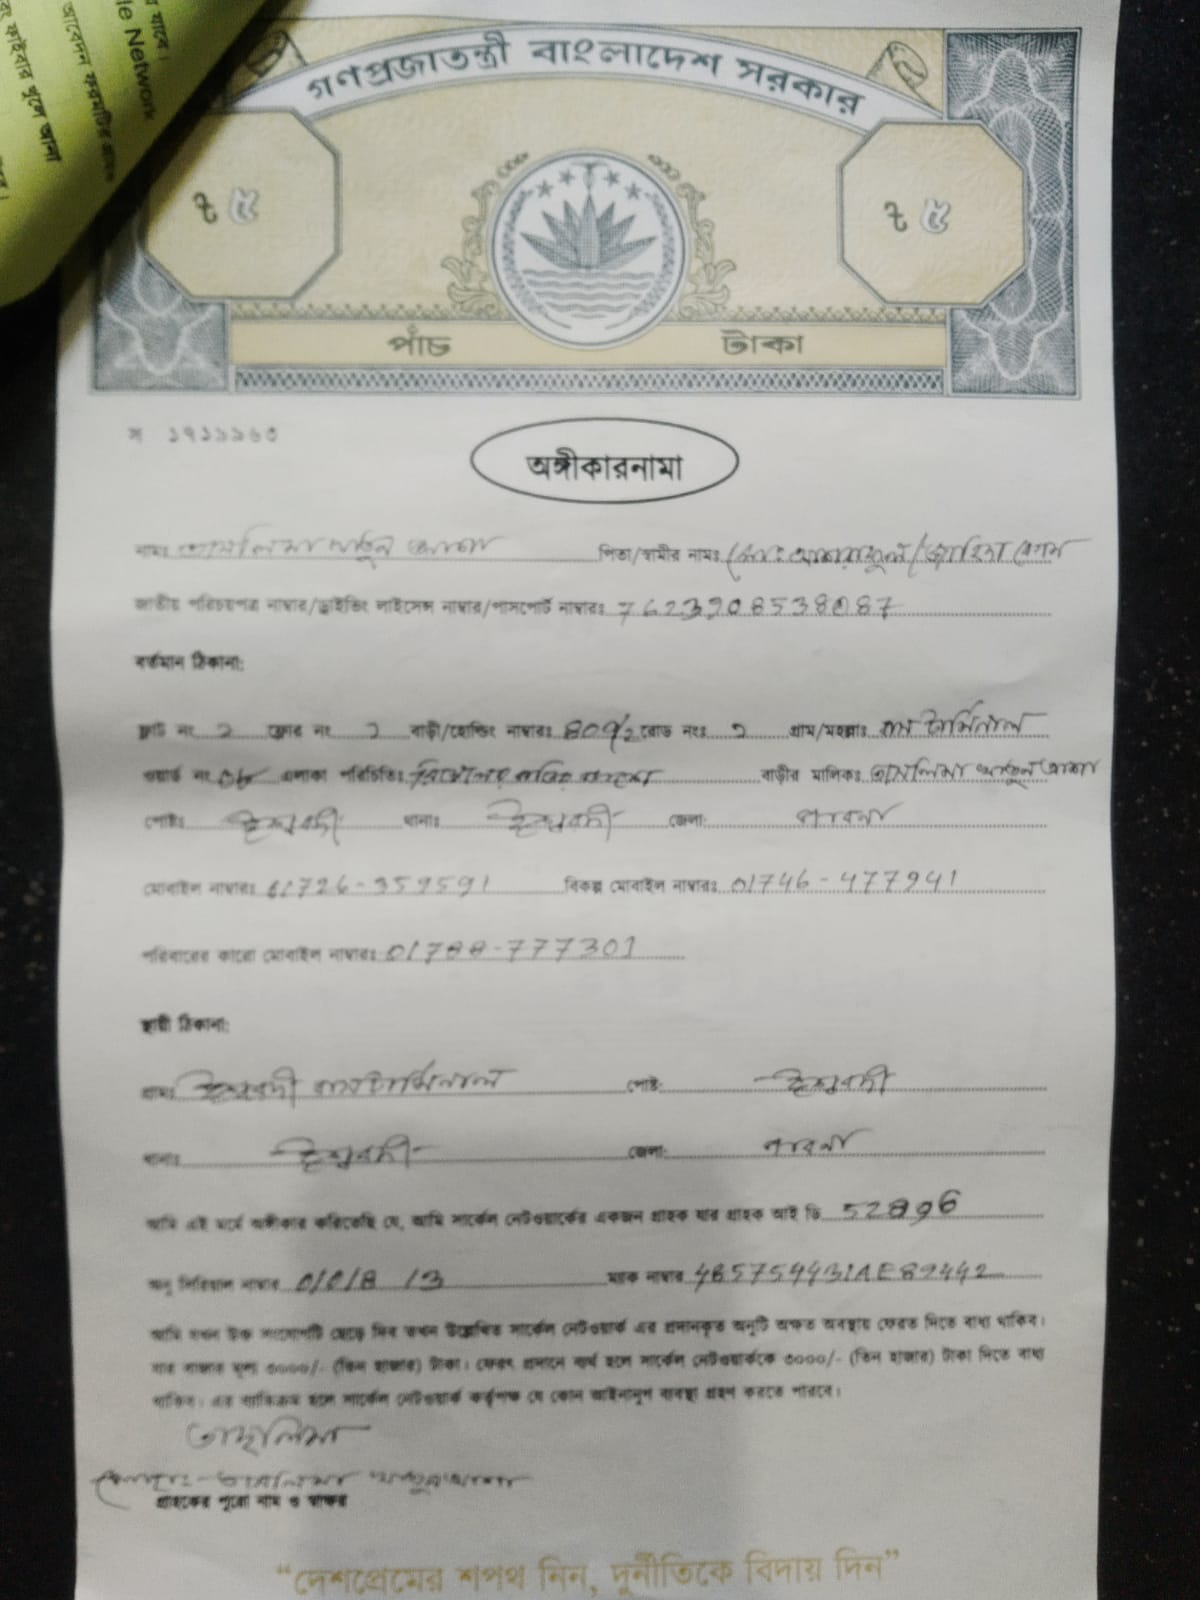 র যাবে।
le Network
আবেদন ফরমটির
ফাইবার খুলে আনা
গণপ্রজাতন্ত্রী বাংলাদেশ সরকার
৳ ৫
৳ ৫
পাঁচ টাকা
অঙ্গীকারনামা
নামঃ পিতা/স্বামীর নামঃ
জাতীয় পরিচয়পত্র নাম্বার/ড্রাইভিং লাইসেন্স নাম্বার/পাসপোর্ট নাম্বারঃ 7623908538087
বর্তমান ঠিকানা:
ফ্লাট নং ২ ফ্লোর নং ১ বাড়ী/হোল্ডিং নাম্বারঃ রোড নংঃ ১ গ্রাম/মহল্লাঃ বাস টার্মিনাল
ওয়ার্ড নং এলাকা পরিচিতিঃ বাড়ীর মালিকঃ
পোষ্টঃ ঈশ্বরদী থানাঃ ঈশ্বরদী জেলা: পাবনা
মোবাইল নাম্বারঃ 01726-359591 বিকল্প মোবাইল নাম্বারঃ 01746-477941
পরিবারের কারো মোবাইল নাম্বারঃ 01788-777301
স্থায়ী ঠিকানা:
গ্রামঃ ঈশ্বরদী বাসটার্মিনাল পোষ্ট: ঈশ্বরদী
থানাঃ ঈশ্বরদী জেলা: পাবনা
আমি এই মর্মে অঙ্গীকার করিতেছি যে, আমি সার্কেল নেটওয়ার্কের একজন গ্রাহক যার গ্রাহক আই ডি 52896
অনু সিরিয়াল নাম্বার ম্যাক নাম্বার
আমি যখন উক্ত সংযোগটি ছেড়ে দিব তখন উল্লেখিত সার্কেল নেটওয়ার্ক এর প্রদানকৃত অনুটি অক্ষত অবস্থায় ফেরত দিতে বাধ্য থাকিব।
যার বাজার মূল্য ৩০০০/- (তিন হাজার) টাকা। ফেরৎ প্রদানে ব্যর্থ হলে সার্কেল নেটওয়ার্ককে ৩০০০/- (তিন হাজার) টাকা দিতে বাধ্য
থাকিব। এর ব্যতিক্রম হলে সার্কেল নেটওয়ার্ক কর্তৃপক্ষ যে কোন আইনানুগ ব্যবস্থা গ্রহণ করতে পারবে।
তাছলিমা
গ্রাহকের পুরো নাম ও স্বাক্ষর
“দেশপ্রেমের শপথ নিন, দুর্নীতিকে বিদায় দিন”